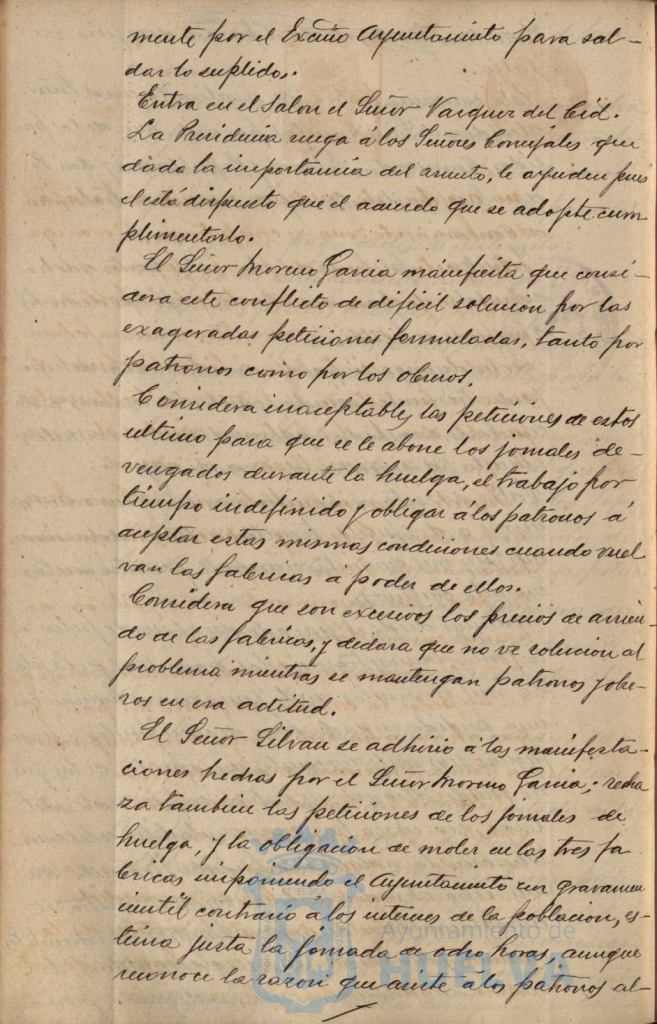 mente por el Excmo Ayuntamiento para sal-
dar lo suplido.
Entra en el salon el Señor Vazquez del Cid.
La Presidencia ruega á los Señores Concejales que
dada la importancia del asunto, le ayuden pues
el está dispuesto que el acuerdo que se adopte cum
plimentarlo.
El Señor Moreno Garcia manifiesta que consi-
dera este conflicto de dificil solucion por las
exageradas peticiones formuladas, tanto por
patronos como por los obreros.
Considera inaceptables las peticiones de estos
ultimo para que se le abone los jornales de-
vengados durante la huelga, el trabajo por
tiempo indefinido y obligar á los patronos á
aceptar estas mismas condiciones cuando vuel
van las fabricas á poder de ellos.
Considera que son excesivos los precios de arrien-
do de las fabricas, y declara que no ve solucion al
problema mientras se mantengan patronos y obre-
ros en esa actitud.
El Señor Silvan se adhirio á las manifesta-
ciones hechas por el Señor Moreno Garcia; recha
za tambien las peticiones de los jornales de
huelga, y la obligacion de moler en las tres fa
bricas imponiendo el Ayuntamiento un gravamen
inutil contrario á los interes de la poblacion, es-
tima justa la jornada de ocho horas, aunque
reconoce la razon que asiste á los patronos al-
Ayuntamiento de
HUELVA